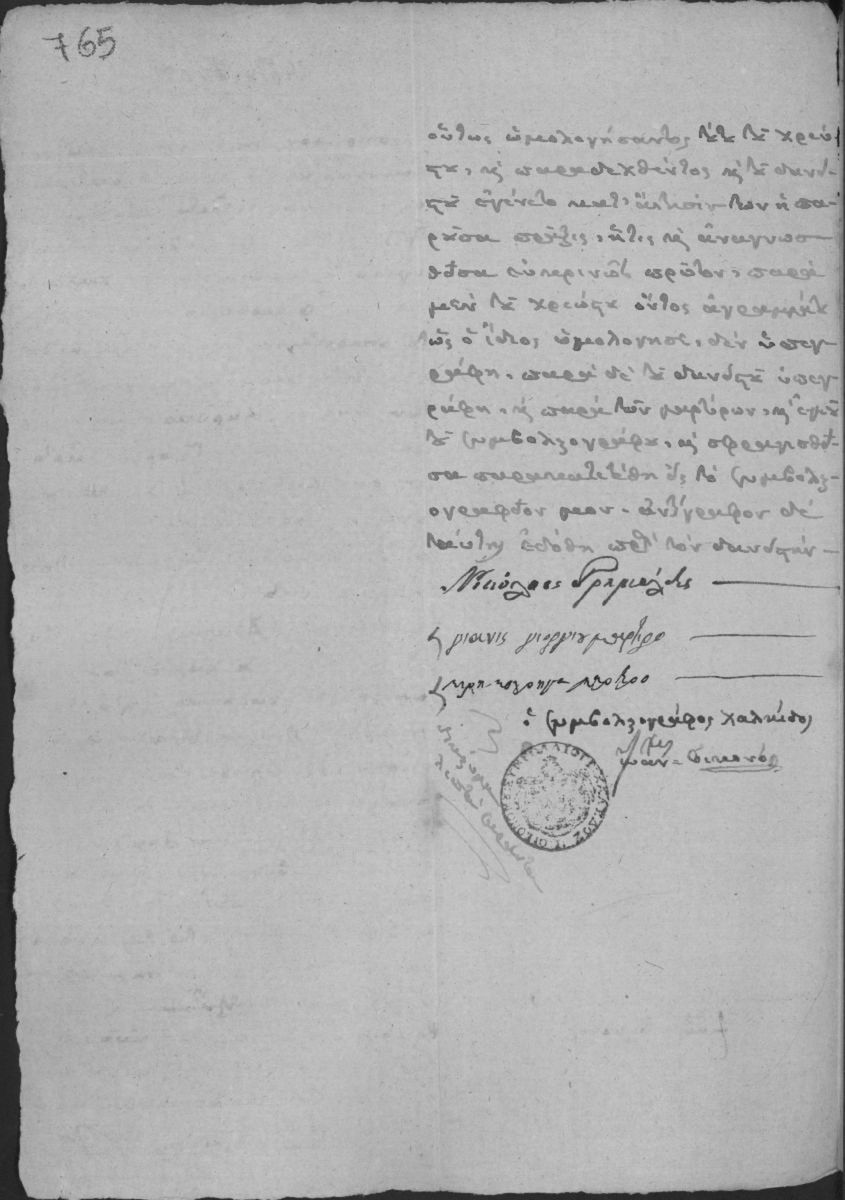 765
οὕτως ὡμολογήσαντος τοῦ χρεώ-
στου, καὶ παραδεχθέντος καὶ τοῦ δανει-
στοῦ ἐγένετο κατ' αἴτησίν των ἡ πα-
ροῦσα πρᾶξις, ἥτις καὶ ἀναγνωσ-
θεῖσα εὐκρινῶς πρῶτον, παρὰ
μὲν τοῦ χρεώστου ὄντος ἀγραμμάτου
ὡς ὁ ἴδιος ὡμολόγησε, δὲν ὑπεγ-
ράφη, παρὰ δὲ τοῦ δανειστοῦ ὑπεγ-
ράφη, καὶ παρὰ τῶν μαρτύρων, καὶ ἐμοῦ
τοῦ συμβολαιογράφου, καὶ σφραγισθεῖ-
σα παρακατετέθη εἰς τὸ συμβολαι-
ογραφεῖον μου. ἀντίγραφον δὲ
ταύτης ἐδόθη πρὸς τὸν δανειστήν.
Νικόλαος
γιανις μαρτηρο
μαρτηρο
ὁ συμβολαιογράφος Χαλκίδος
Ἰωάν.